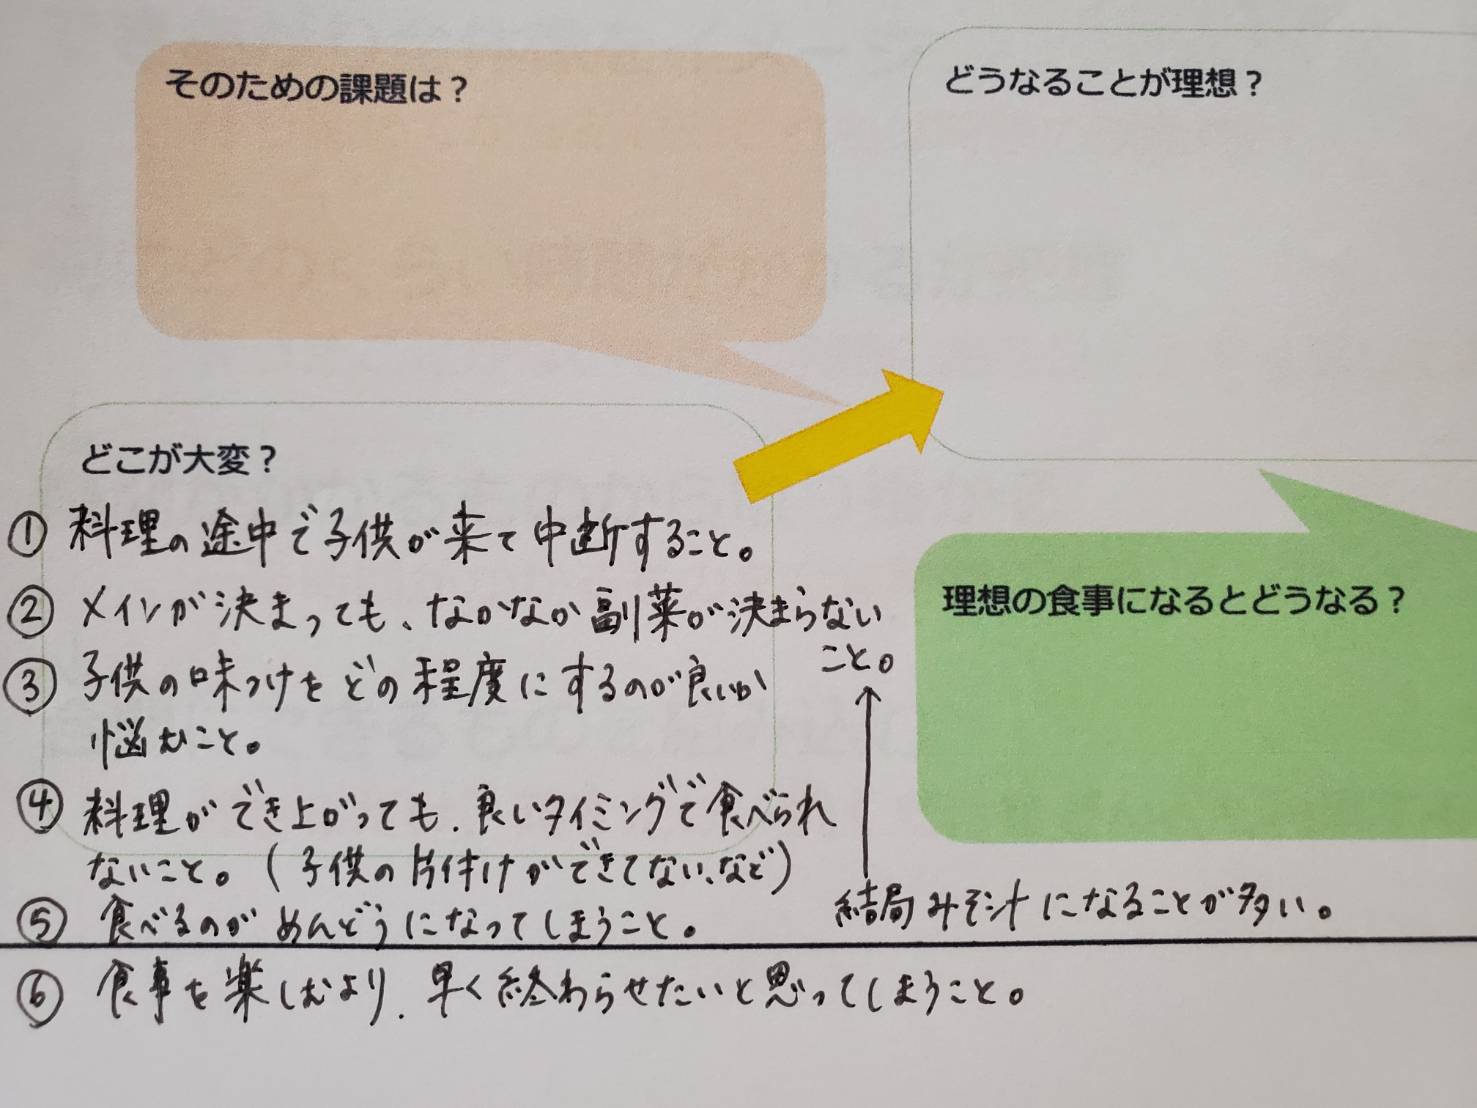 そのための課題は？
どうなることが理想？
どこが大変？
① 料理の途中で子供が来て中断すること。
② メインが決まっても、なかなか副菜が決まらない
こと。
③ 子供の味つけをどの程度にするのが良いか
悩むこと。
④ 料理ができ上がっても、良いタイミングで食べられ
ないこと。(子供の片付けができてない、など)
結局みそ汁になることが多い。
⑤ 食べるのがめんどうになってしまうこと。
⑥ 食事を楽しむより、早く終わらせたいと思ってしまうこと。
理想の食事になるとどうなる？